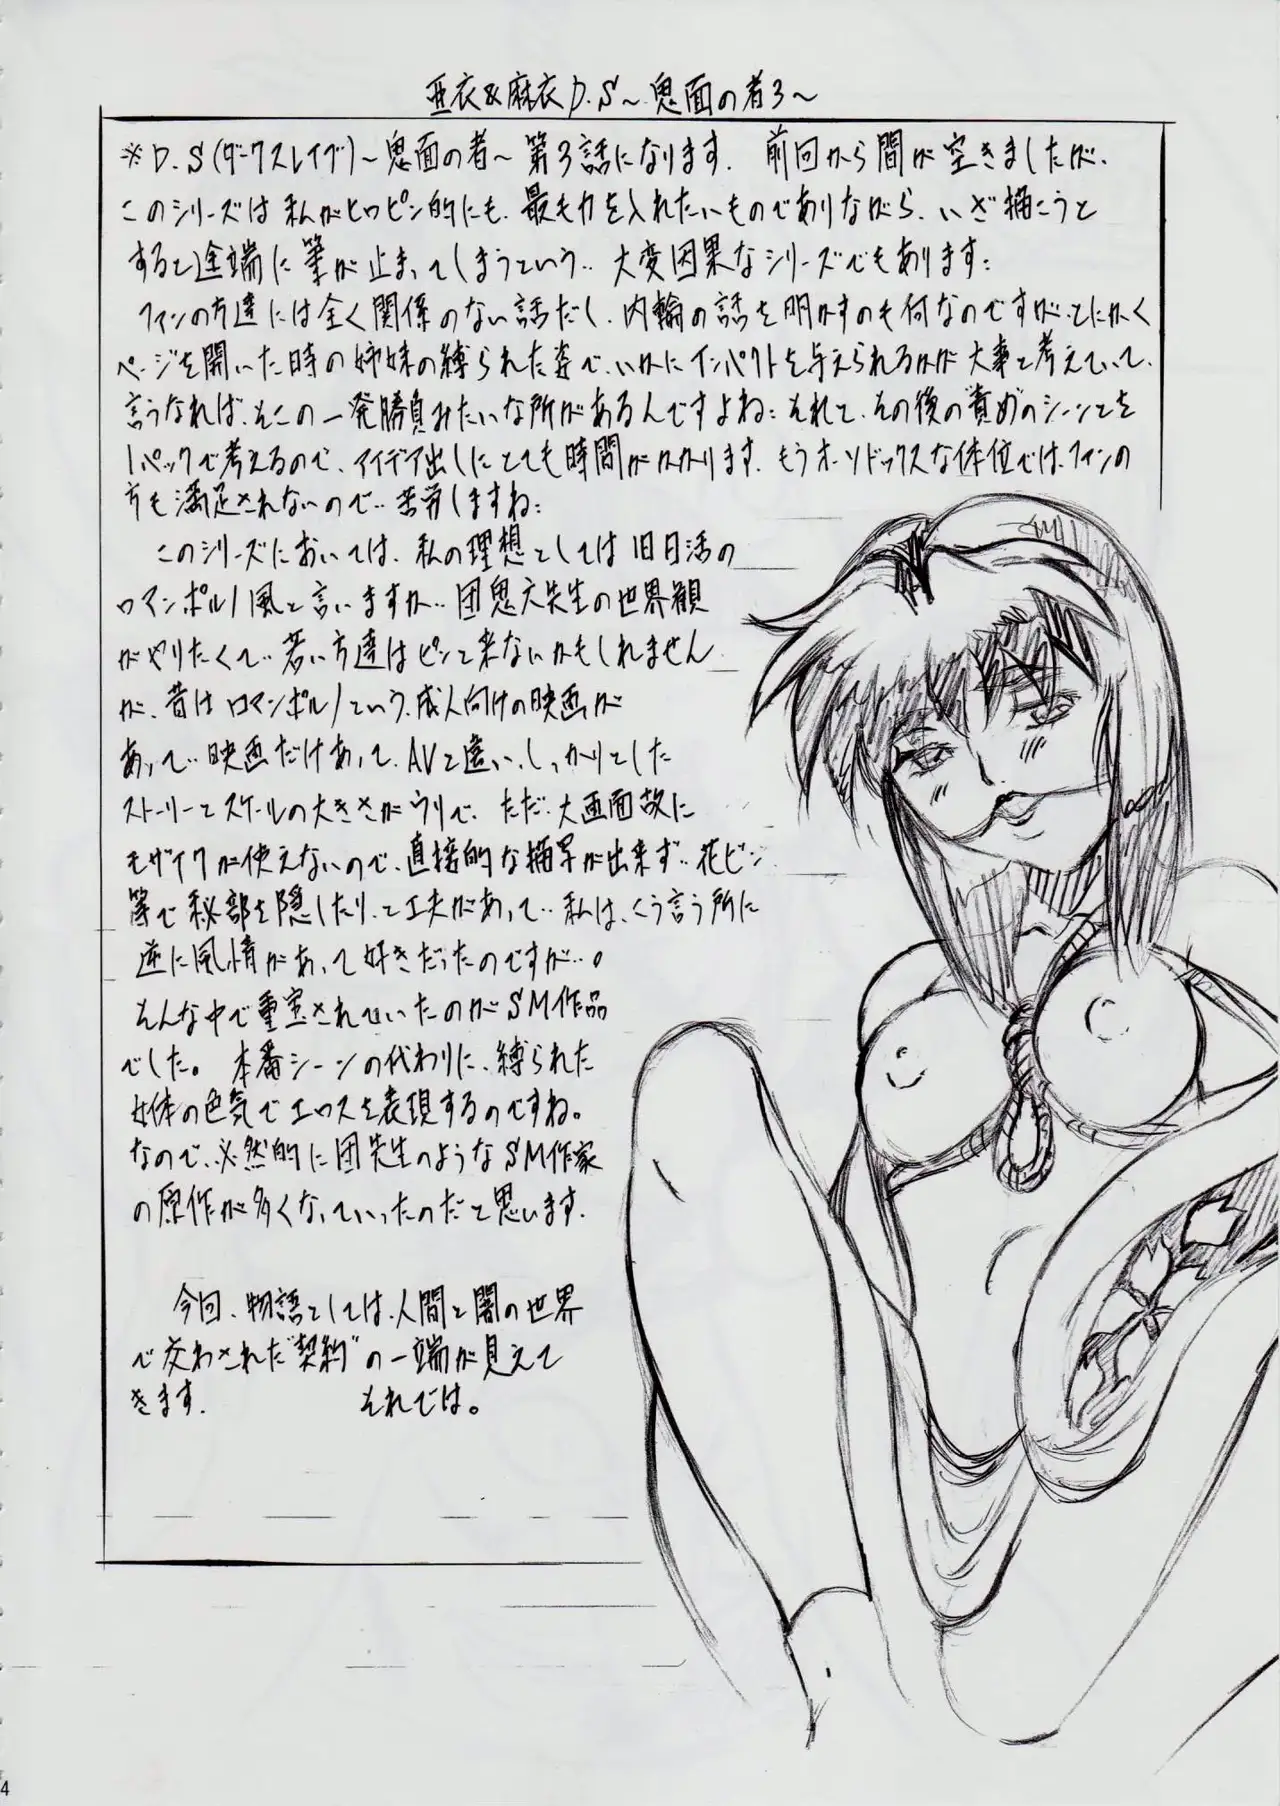 亜衣&麻衣D.S〜鬼面の者3〜
※D.S(ダークスレイブ)〜鬼面の者〜第3話になります. 前回から間が空きましたが、
このシリーズは私がヒロピン的にも、最も力を入れたいものでありながら、いざ描こうと
すると途端に筆が止まってしまうという‥大変因果なシリーズでもあります:
ファンの方達には全く関係のない話だし、内輪の話を明かすのも何なのですが、とにかく
ページを開いた時の姉妹の縛られた姿で、いかにインパクトを与えられるかが大事と考えていて、
言うなれば、そこの一発勝負みたいな所があるんですよね:それと、その後の"責め"のシーンとを
1パックで考えるので、アイデア出しにとても時間がかかります. もうオーソドックスな体位では、ファンの
方も満足されないので‥苦労しますね:
このシリーズにおいては、私の理想としては旧日活の
ロマンポルノ風と言いますか‥団鬼六先生の世界観
がやりたくて‥若い方達はピンと来ないかもしれません
が、昔はロマンポルノという、成人向けの映画が
あって‥映画だけあって、AVと違い、しっかりとした
ストーリーとスケールの大きさがウリで、ただ‥大画面故に
モザイクが使えないので、直接的な描写が出来ず‥花ビン
等で秘部を隠したり、と工夫があって‥私は、こう言う所に
逆に風情があって好きだったのですが‥。
そんな中で重宝されていたのがSM作品
でした。本番シーンの代わりに、縛られた
女体の色気でエロスを表現するのですね。
なので、必然的に団先生のようなSM作家
の原作が多くなっていったのだと思います.
今回、物語としては、人間と闇の世界
で交わされた"契約"の一端が見えて
きます. それでは。
4